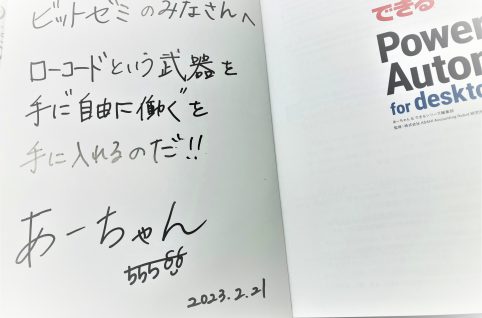 ビットゼミのみなさんへ
ローコードという武器を
手に"自由に働く"を
手に入れるのだ!!
あーちゃん
555
2023.2.21
できる
Power
Autom
for deskto